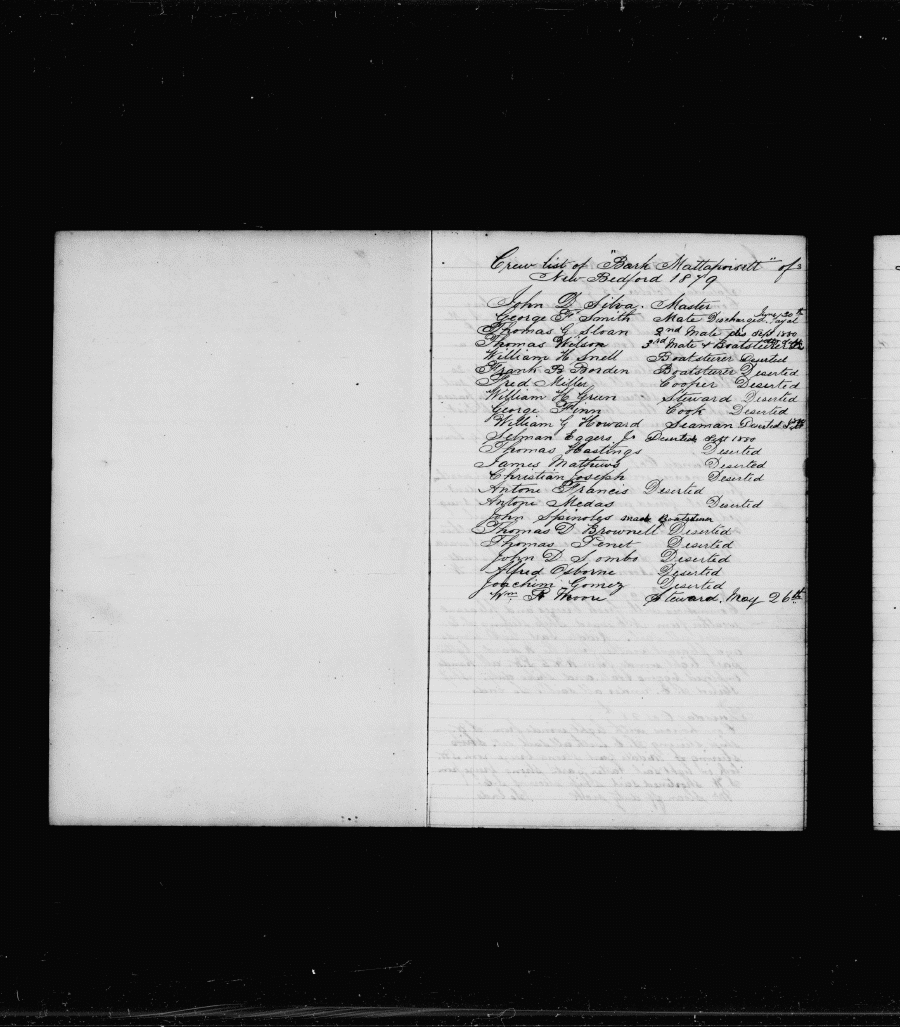 Crew list of "Bark Mattapoisett" of
New Bedford 1879
John D. Silva. Master
George F. Smith Mate Discharged June 20th
Thomas G Sloan 2nd Mate des Sept 1880
Thomas Wilson 3rd Mate & Boatsteerer
William H Snell Boatsteerer Deserted
Frank B. Borden Boatsteerer Deserted
Fred Miller Cooper Deserted
William H. Green Steward Deserted
George Finn Cook Deserted
William G Howard Seaman Deserted
Selman Eggers Jr Deserted Sept 1880
Thomas Hastings Deserted
James Mathews Deserted
Christian Joseph Deserted
Antone Francis Deserted
Antone Medas Deserted
John Spinolas made Boatsteerer
Thomas D. Brownell Deserted
Thomas Penet Deserted
John D. Lombo Deserted
Alfred Osborne Deserted
Joachim Gomez Deserted
Wm Moore Steward. May 26th